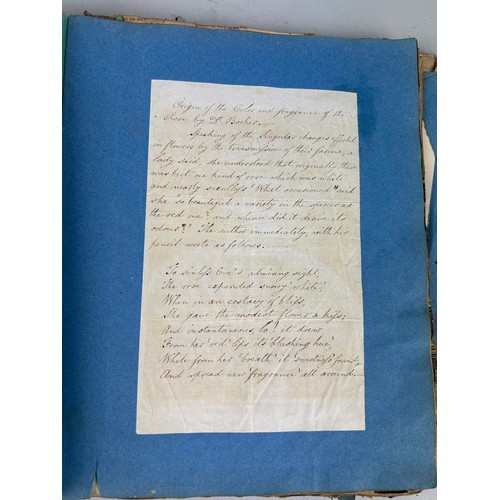 Origin of the Color and fragrance of the
Rose by Dr Barker.—
Speaking of the Singular changes effected
in flowers by the transmission of their farina, a
lady said, she understood that originally there
was but one kind of rose which was white
and nearly scentless "What occasioned" said
she "so beautiful a variety in the species as
the red one? and whence did it derive its
odour"? The author immediately with his
pencil wrote as follows.—
To sinless Eve's admiring sight,
The rose expanded snowy white!
When in an ecstacy of bliss,
She gave the modest flower a kiss;
And instantaneous, lo! it drew
From her 'red' lips its blushing hue,
While from her 'breath' it sweetness found,
And spread new 'fragrance' all around.—